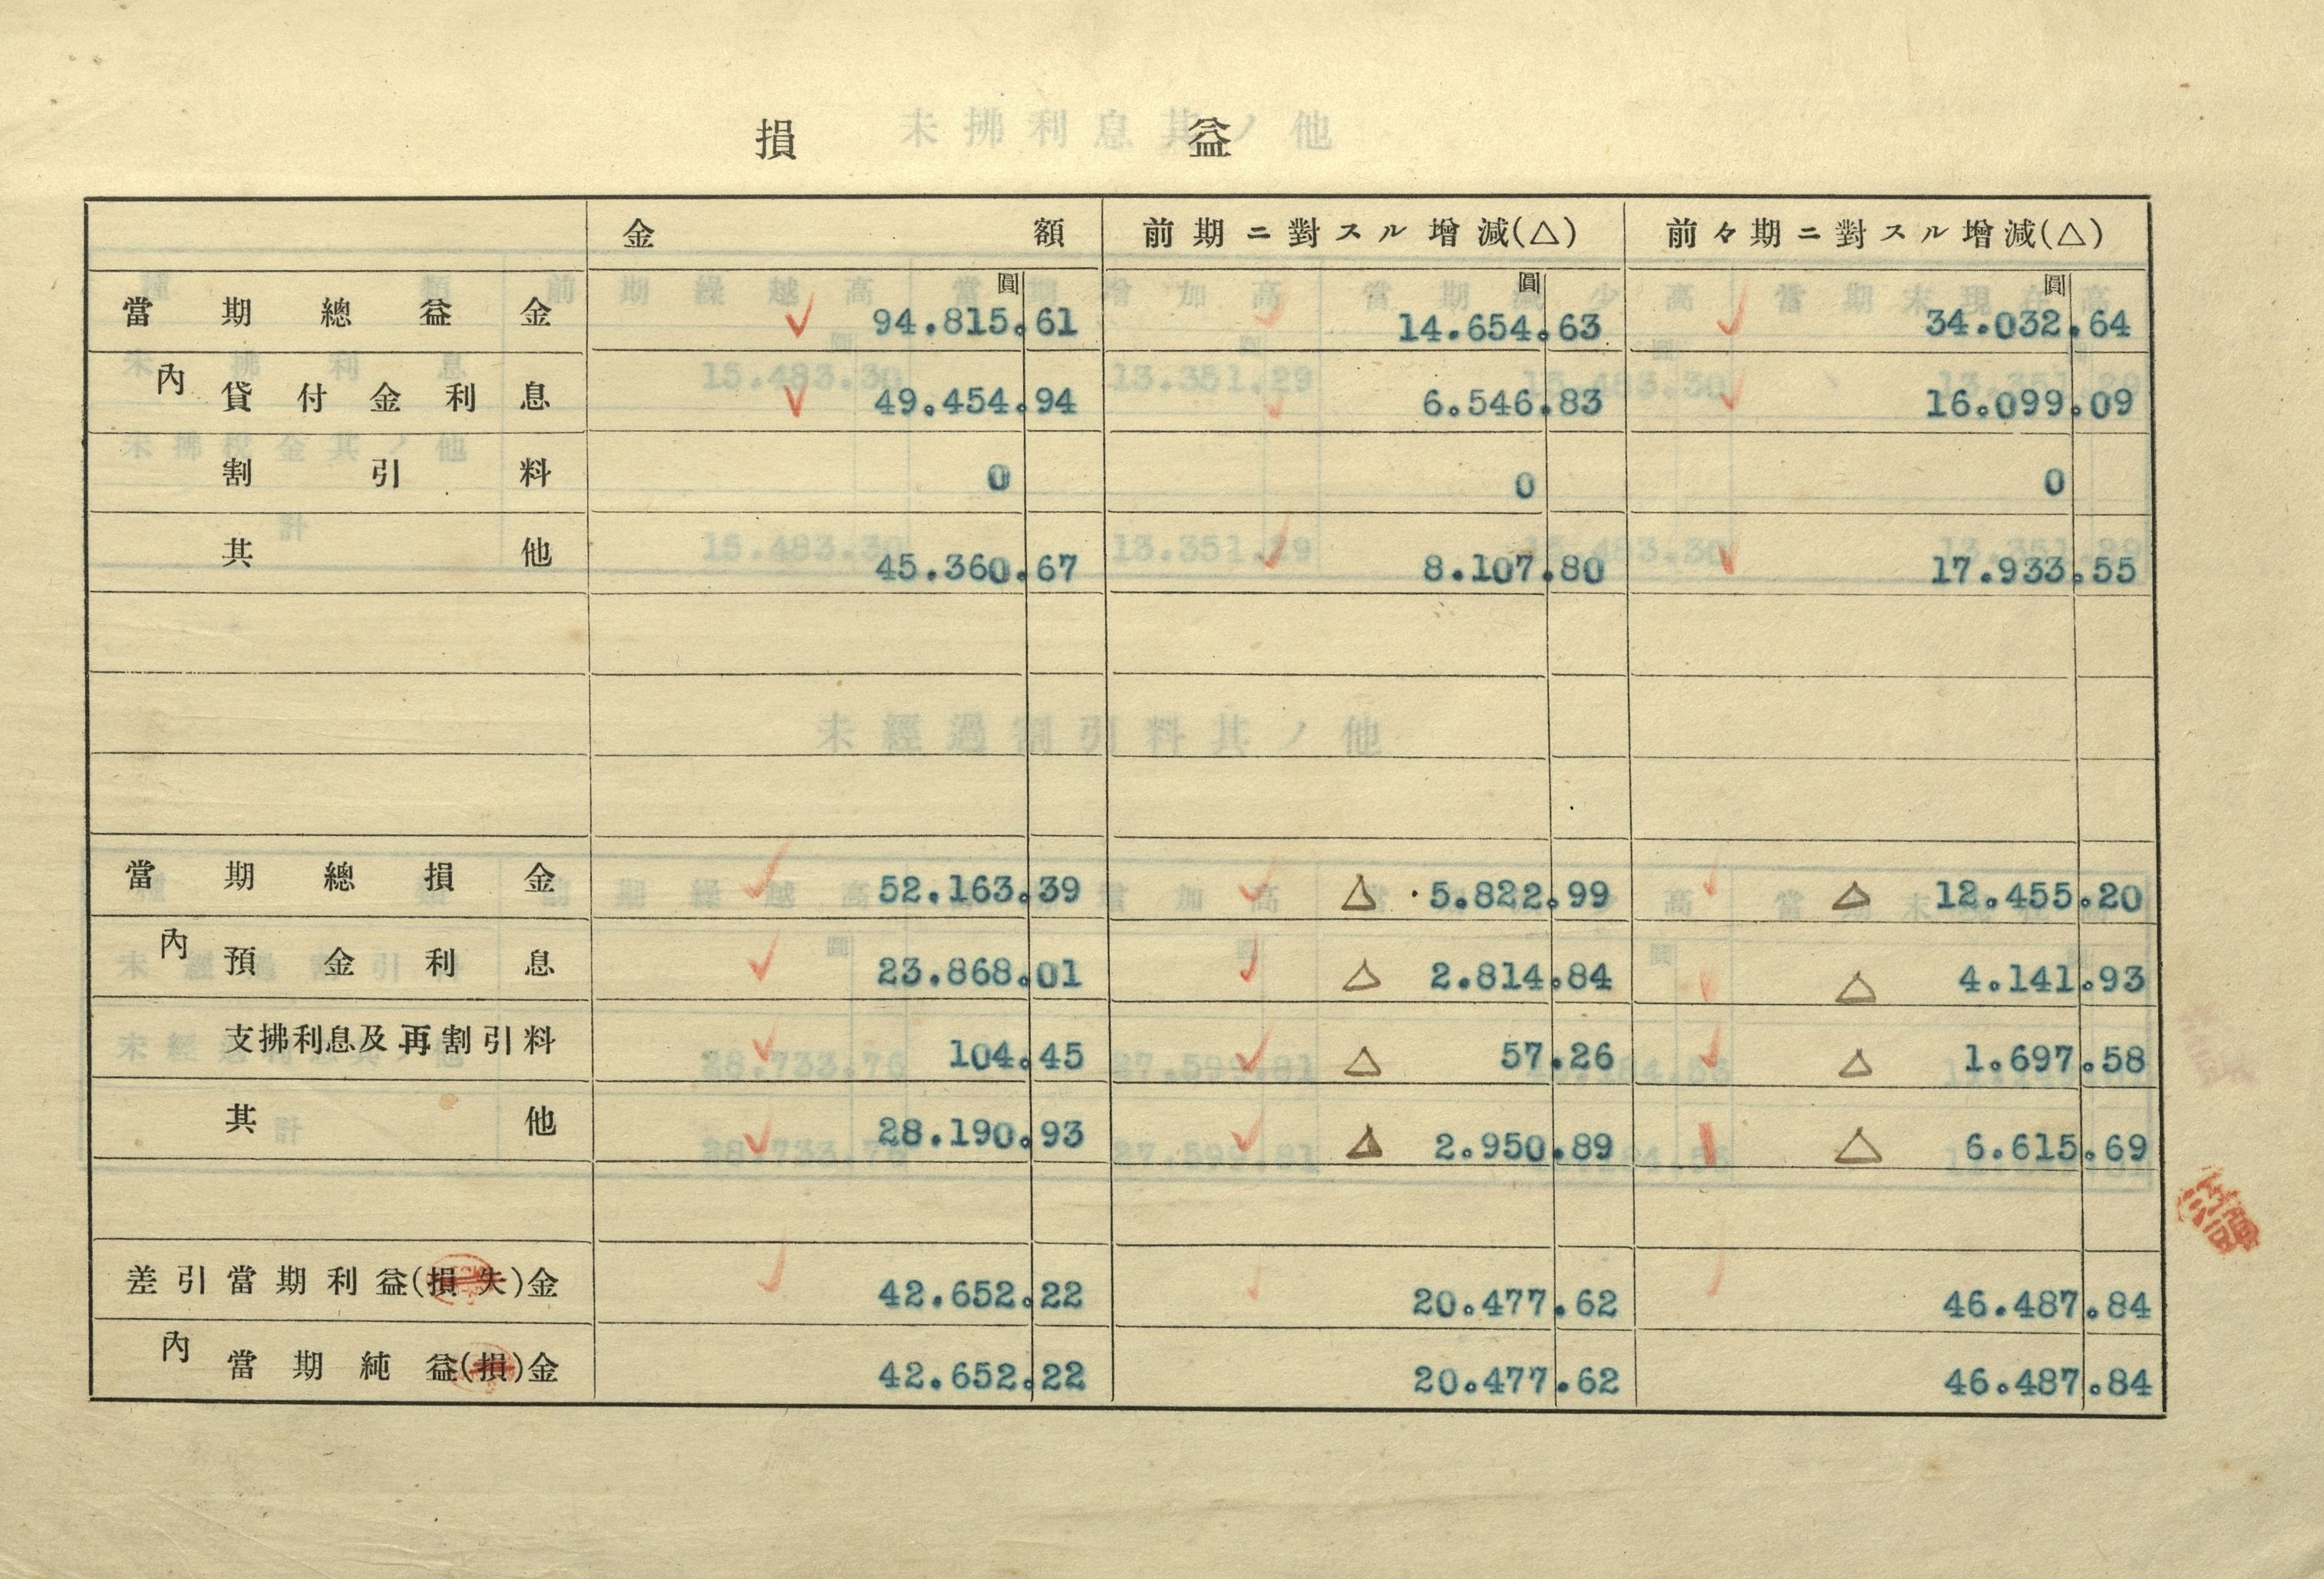 損益
金額 前期ニ對スル增減(△) 前々期ニ對スル增減(△)
圓 圓 圓
當期總益金 94.815.61 14.654.63 34.032.64
內 貸付金利息 49.454.94 6.546.83 16.099.09
割引料 0 0 0
其他 45.360.67 8.107.80 17.933.55
當期總損金 52.163.39 △ 5.822.99 △ 12.455.20
內 預金利息 23.868.01 △ 2.814.84 △ 4.141.93
支拂利息及再割引料 104.45 △ 57.26 △ 1.697.58
其他 28.190.93 △ 2.950.89 △ 6.615.69
差引當期利益(損失)金 42.652.22 20.477.62 46.487.84
內 當期純益(損)金 42.652.22 20.477.62 46.487.84